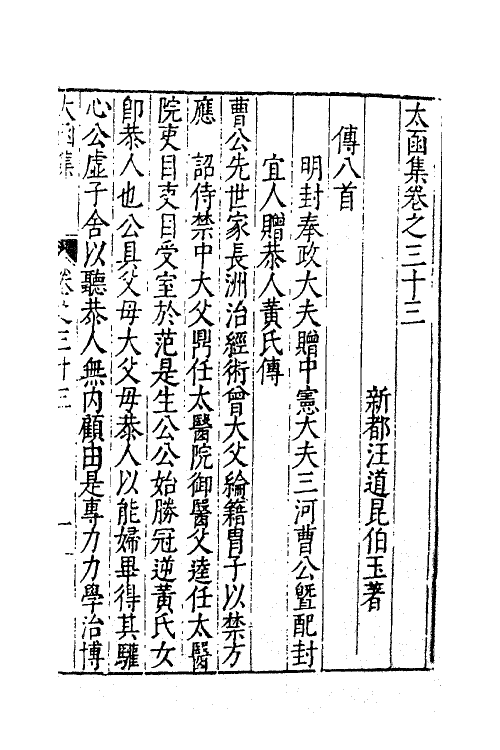 太函集卷之三十三
新都汪道昆伯玉著
傳八首
明封奉政大夫贈中憲大夫三河曹公曁配封
宜人贈恭人黃氏傳
曹公先世家長洲治經術曾大父綸籍胄子以禁方
應　詔侍禁中大父鼎任太醫院御醫父逵任太醫
院吏目吏目受室於范是生公公始勝冠逆黃氏女
卽恭人也公具父母大父母恭人以能婦畢得其驩
心公虛子舍以聽恭人無內顧由是專力力學治博
太函集　卷之三十三　一